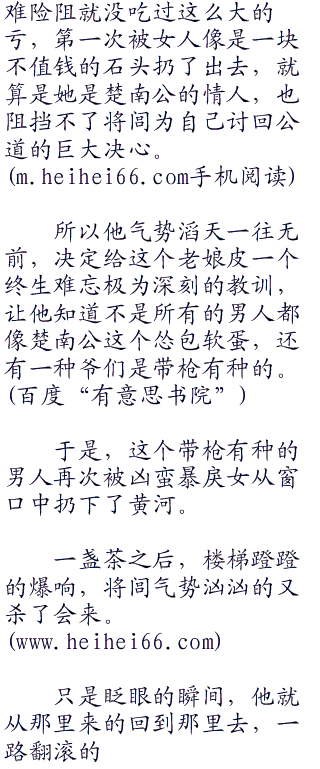 难险阻就没吃过这么大的
亏，第一次被女人像是一块
不值钱的石头扔了出去，就
算是她是楚南公的情人，也
阻挡不了将闾为自己讨回公
道的巨大决心。
(m.heihei66.com手机阅读)
所以他气势滔天一往无
前，决定给这个老娘皮一个
终生难忘极为深刻的教训，
让他知道不是所有的男人都
像楚南公这个怂包软蛋，还
有一种爷们是带枪有种的。
(百度“有意思书院”)
于是，这个带枪有种的
男人再次被凶蛮暴戾女从窗
口中扔下了黄河。
一盏茶之后，楼梯蹬蹬
的爆响，将闾气势汹汹的又
杀了会来。
(www.heihei66.com)
只是眨眼的瞬间，他就
从那里来的回到那里去，一
路翻滚的